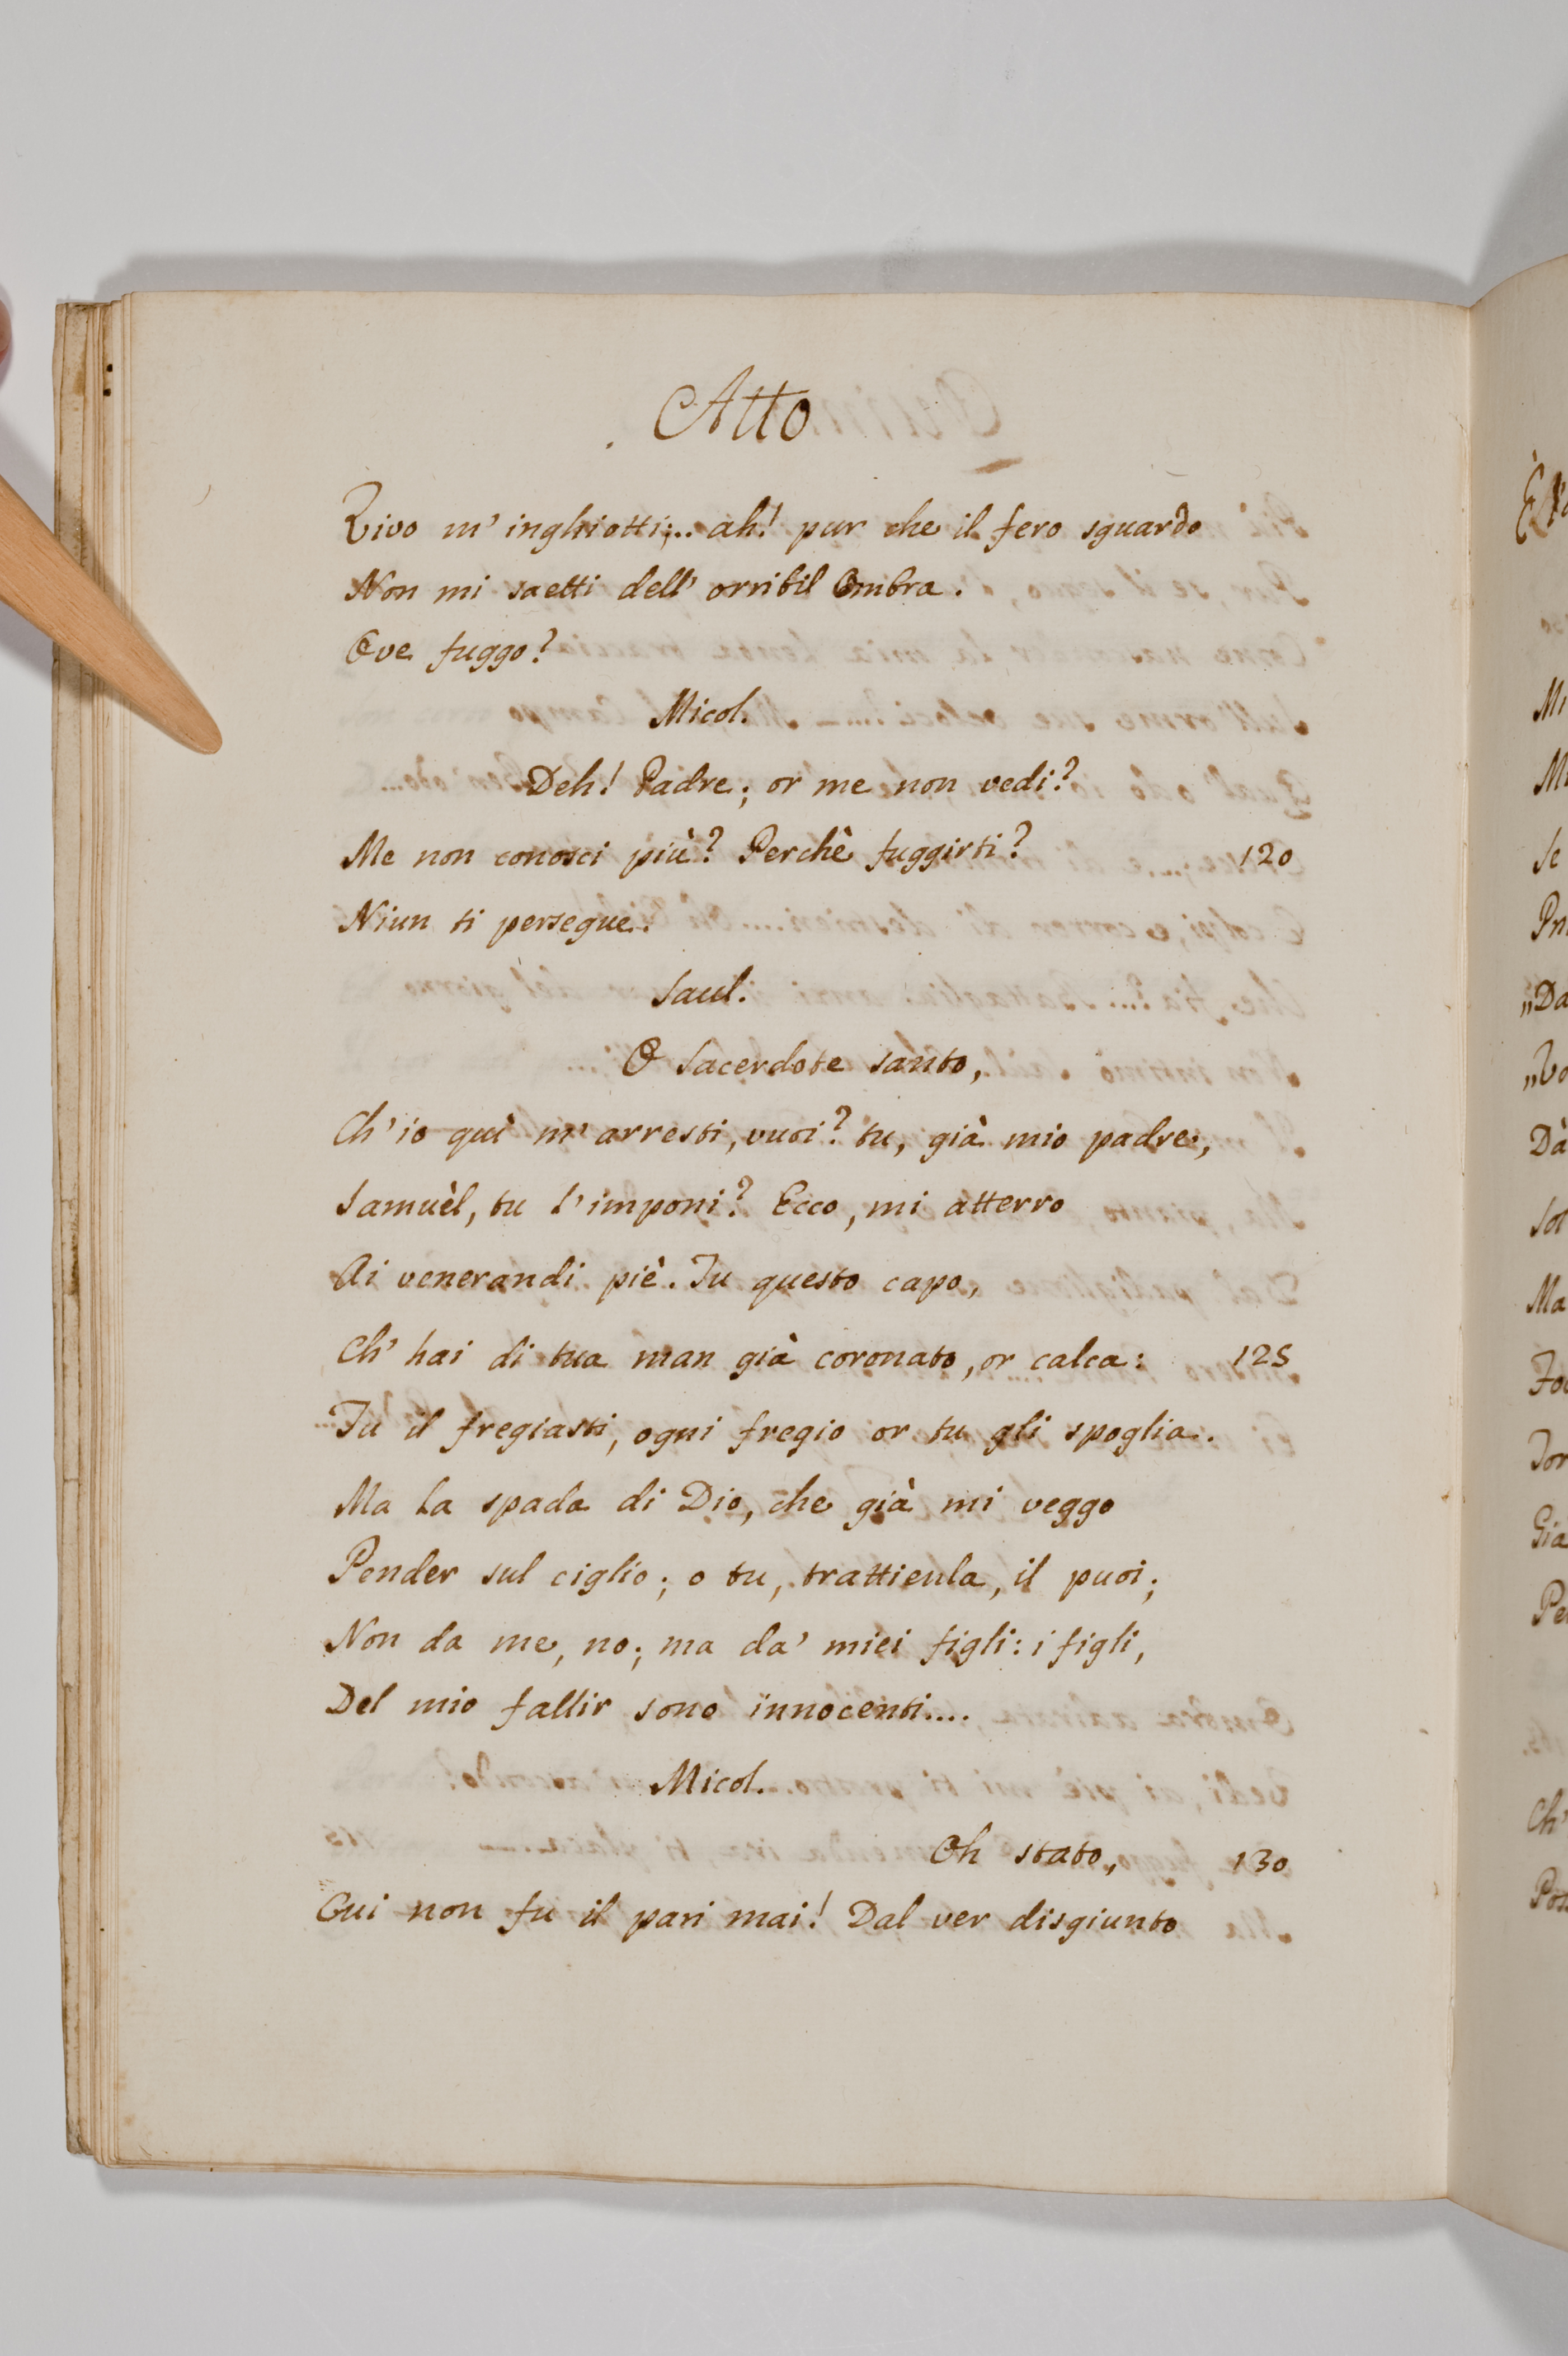 Atto
Vivo m' inghiotti;... ah! pur che il fero sguardo
Non mi saetti dell' orribil Ombra.
Ove fuggo?
Micol.
Deh! Padre; or me non vedi?
Me non conosci più? Perchè fuggirti? 120
Niun ti persegue.
Saul.
O Sacerdote santo,
Ch' io quì m' arresti, vuoi? tu, già mio padre,
Samuèl, tu l' imponi? Ecco, mi atterro
Ai venerandi piè. Tu questo capo,
Ch' hai di tua man già coronato, or calca: 125
Tu il fregiasti, ogni fregio or tu gli spoglia.
Ma la spada di Dio, che già mi veggo
Pender sul ciglio; o tu, trattienla, il puoi;
Non da me, no; ma da' miei figli: i figli,
Del mio fallir sono innocenti....
Micol.
Oh stato, 130
Cui non fu il pari mai! Dal ver disgiunto